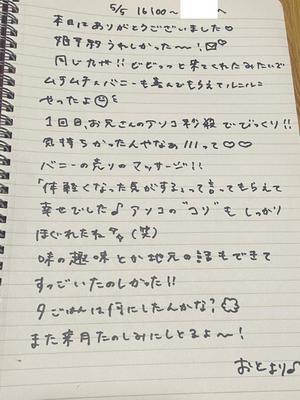 5/5 16:00～　　～
本日はありがとうございました♡
姫予約うれしかった～！♡
同じ方が!!どどっと来てくれたみたいで
ムチムチバニーも喜んでもらえてルンルン
やったよ
1回目、お兄さんのアソコ秒殺でびっくり!!
気持ちかったんやなぁ///って♡♡
バニーの売りのマッサージ!!
「体軽くなった気がする」って言ってもらえて
幸せでした♪アソコの"コリ"もしっかり
ほぐれたね（笑）
味の趣味とか地元の話もできて
すっごいたのしかった!!
夕ごはんは何にしたんかな？
また来月たのしみにしとるよ～！
おとより♪